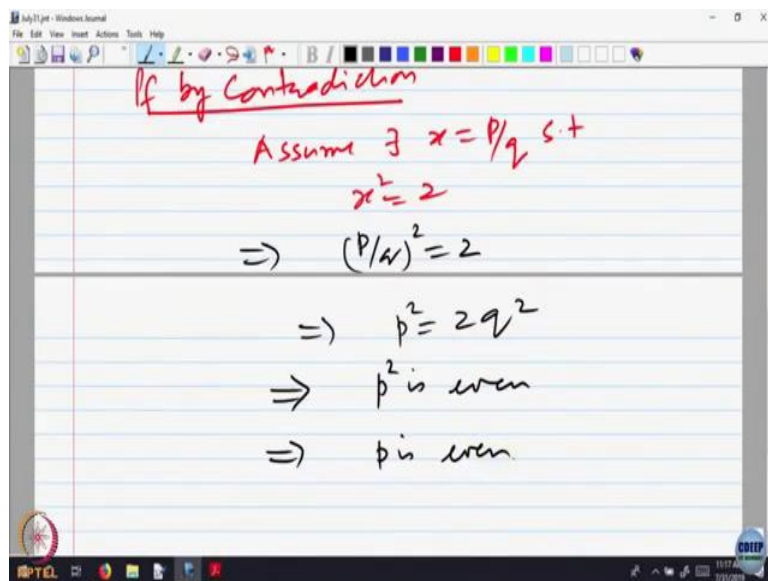 July31.jnt - Windows Journal
File Edit View Insert Actions Tools Help
Pf by Contradiction
Assume ∃ x = P/q s.t
x² = 2
=> (P/q)² = 2
=> p² = 2q²
=> p² is even
=> p is even.
NPTEL
CDEEP
11:17 AM
7/31/2019